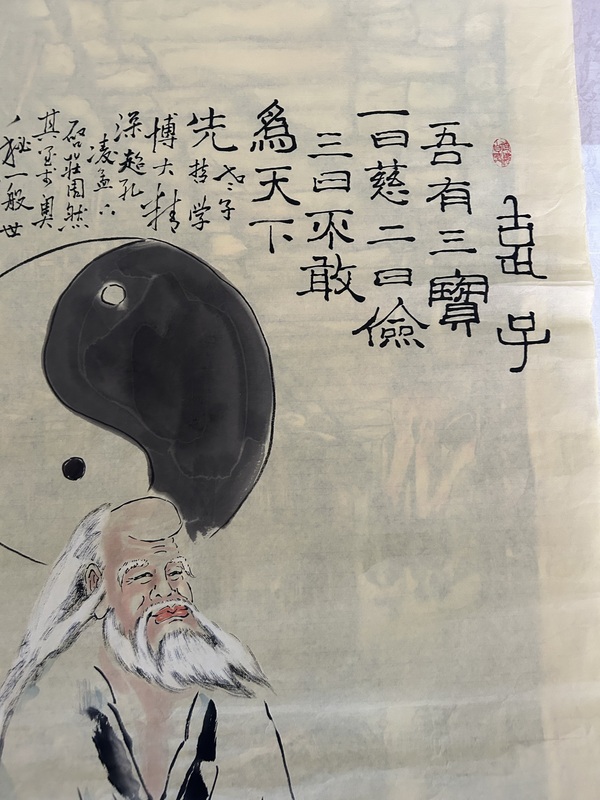 子
吾有三寶
一曰慈二曰儉
三曰不敢
爲天下
先
老子
哲学
博大精
深超孔
凌孟
庄周然
其奥
秘一般世